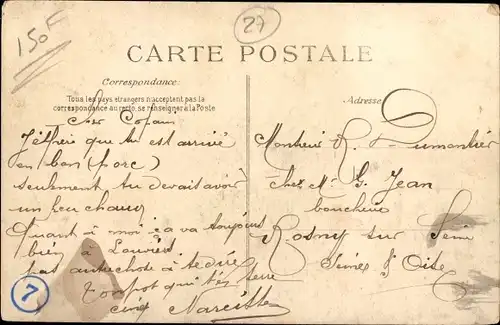 150F
27
CARTE POSTALE
Correspondance:
Tous les pays étrangers n'acceptent pas la
correspondance au recto, se renseigner à la Poste
Cher Copain
J'éspère que tu est arrivé
en bon (porc)
seulement tu devait avoir
un peu chaud
Quant à moi ça va toujours
bien à Louviers
pas autre chose à te dire
Ton pot qui t'es serre
cinq Narcisse
7
Adresse
Monsieur R. Dumontier
chez Mr G. Jean
boucherie
Rosny sur Seine
Seine & Oise